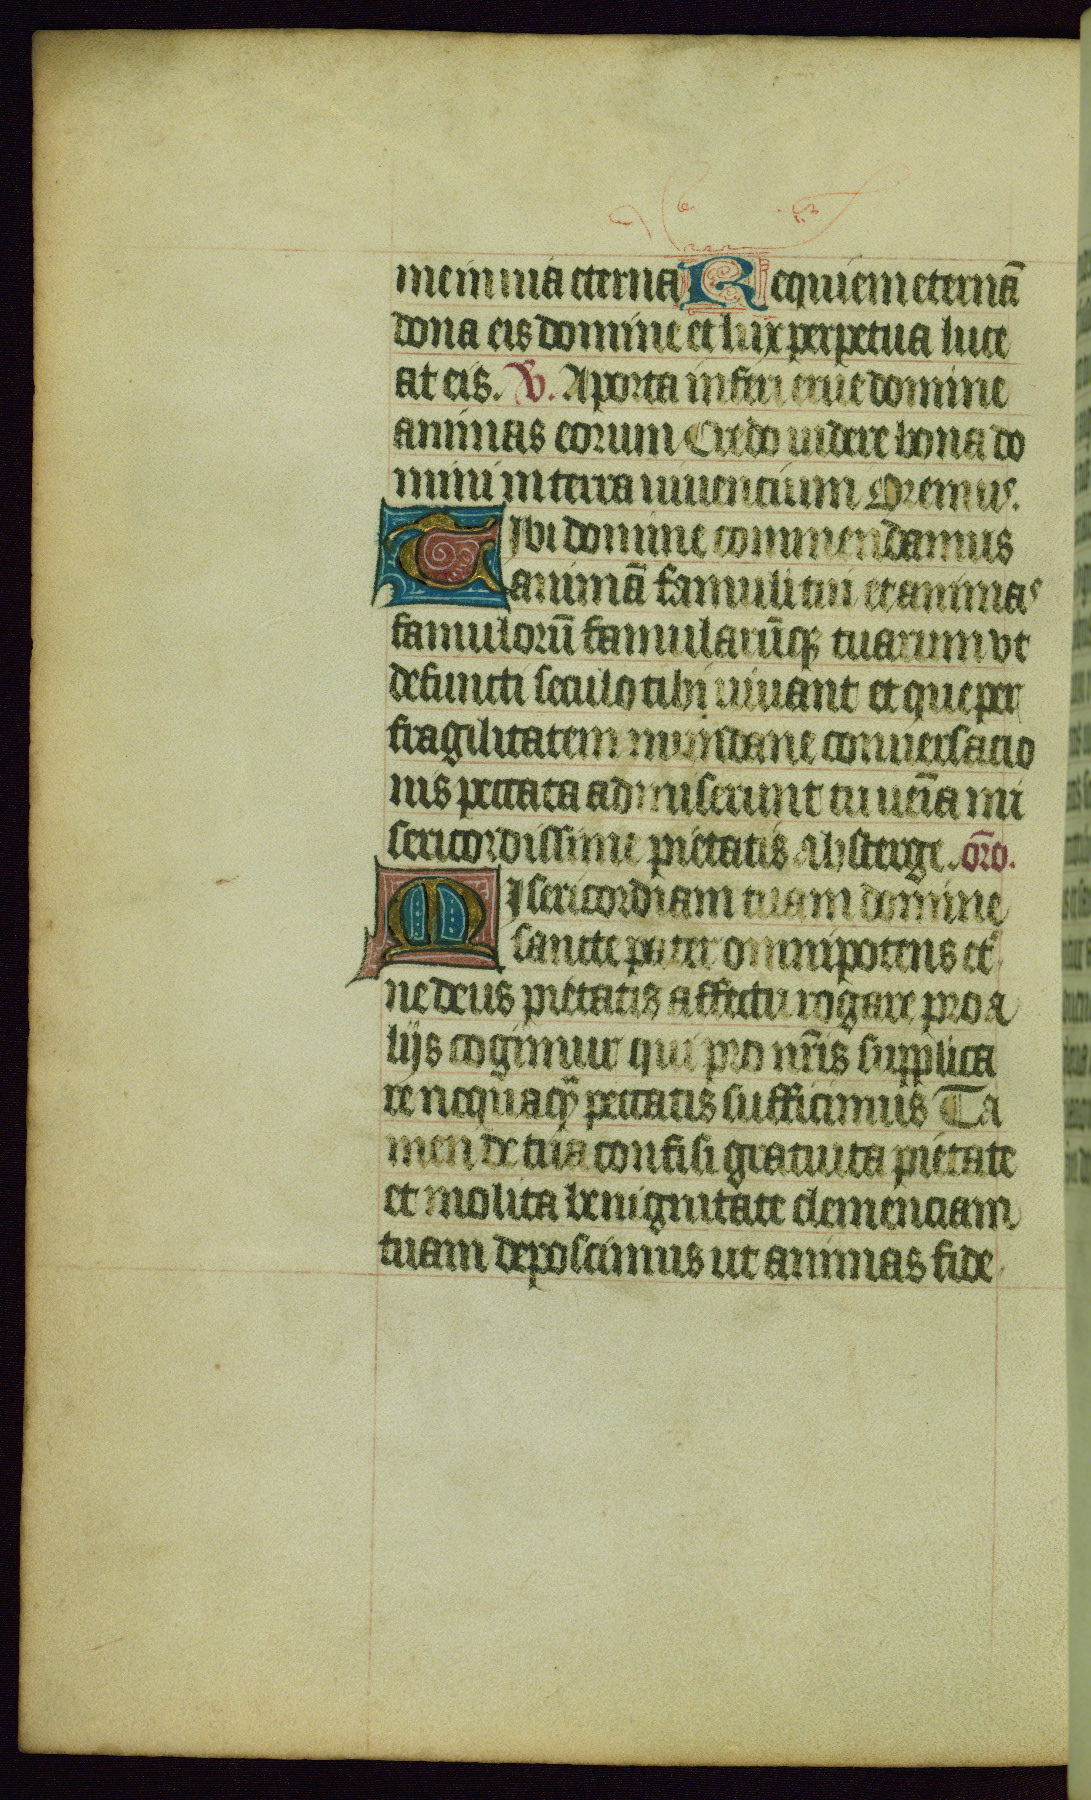 me in uia eterna Requiem eternā
dona eis domine et lux perpetua luce
at eis. V. A porta inferi erue domine
animas eorum Credo uidere bona do
mini in terra uiuencium Oremus.
Tibi domine commendamus
animā famuli tui et animas
famulorū famularūqꝫ tuarum vt
defuncti seculo tibi uiuant et que per
fragilitatem mundane conuersacio
nis peccata admiserunt tu ueīa mi
sericordissime pietatis absterge. orō.
Misericordiam tuam domine
sancte pater omnipotens et
ne deus pietatis affectu rogare pro a
lijs cogimur qui pro nr̄is supplica
re nequaqꝫ peccatis sufficimus Ta
men de tua confisi gratuita pietate
et molita benignitate clemenciam
tuam deposcimus ut animas fide